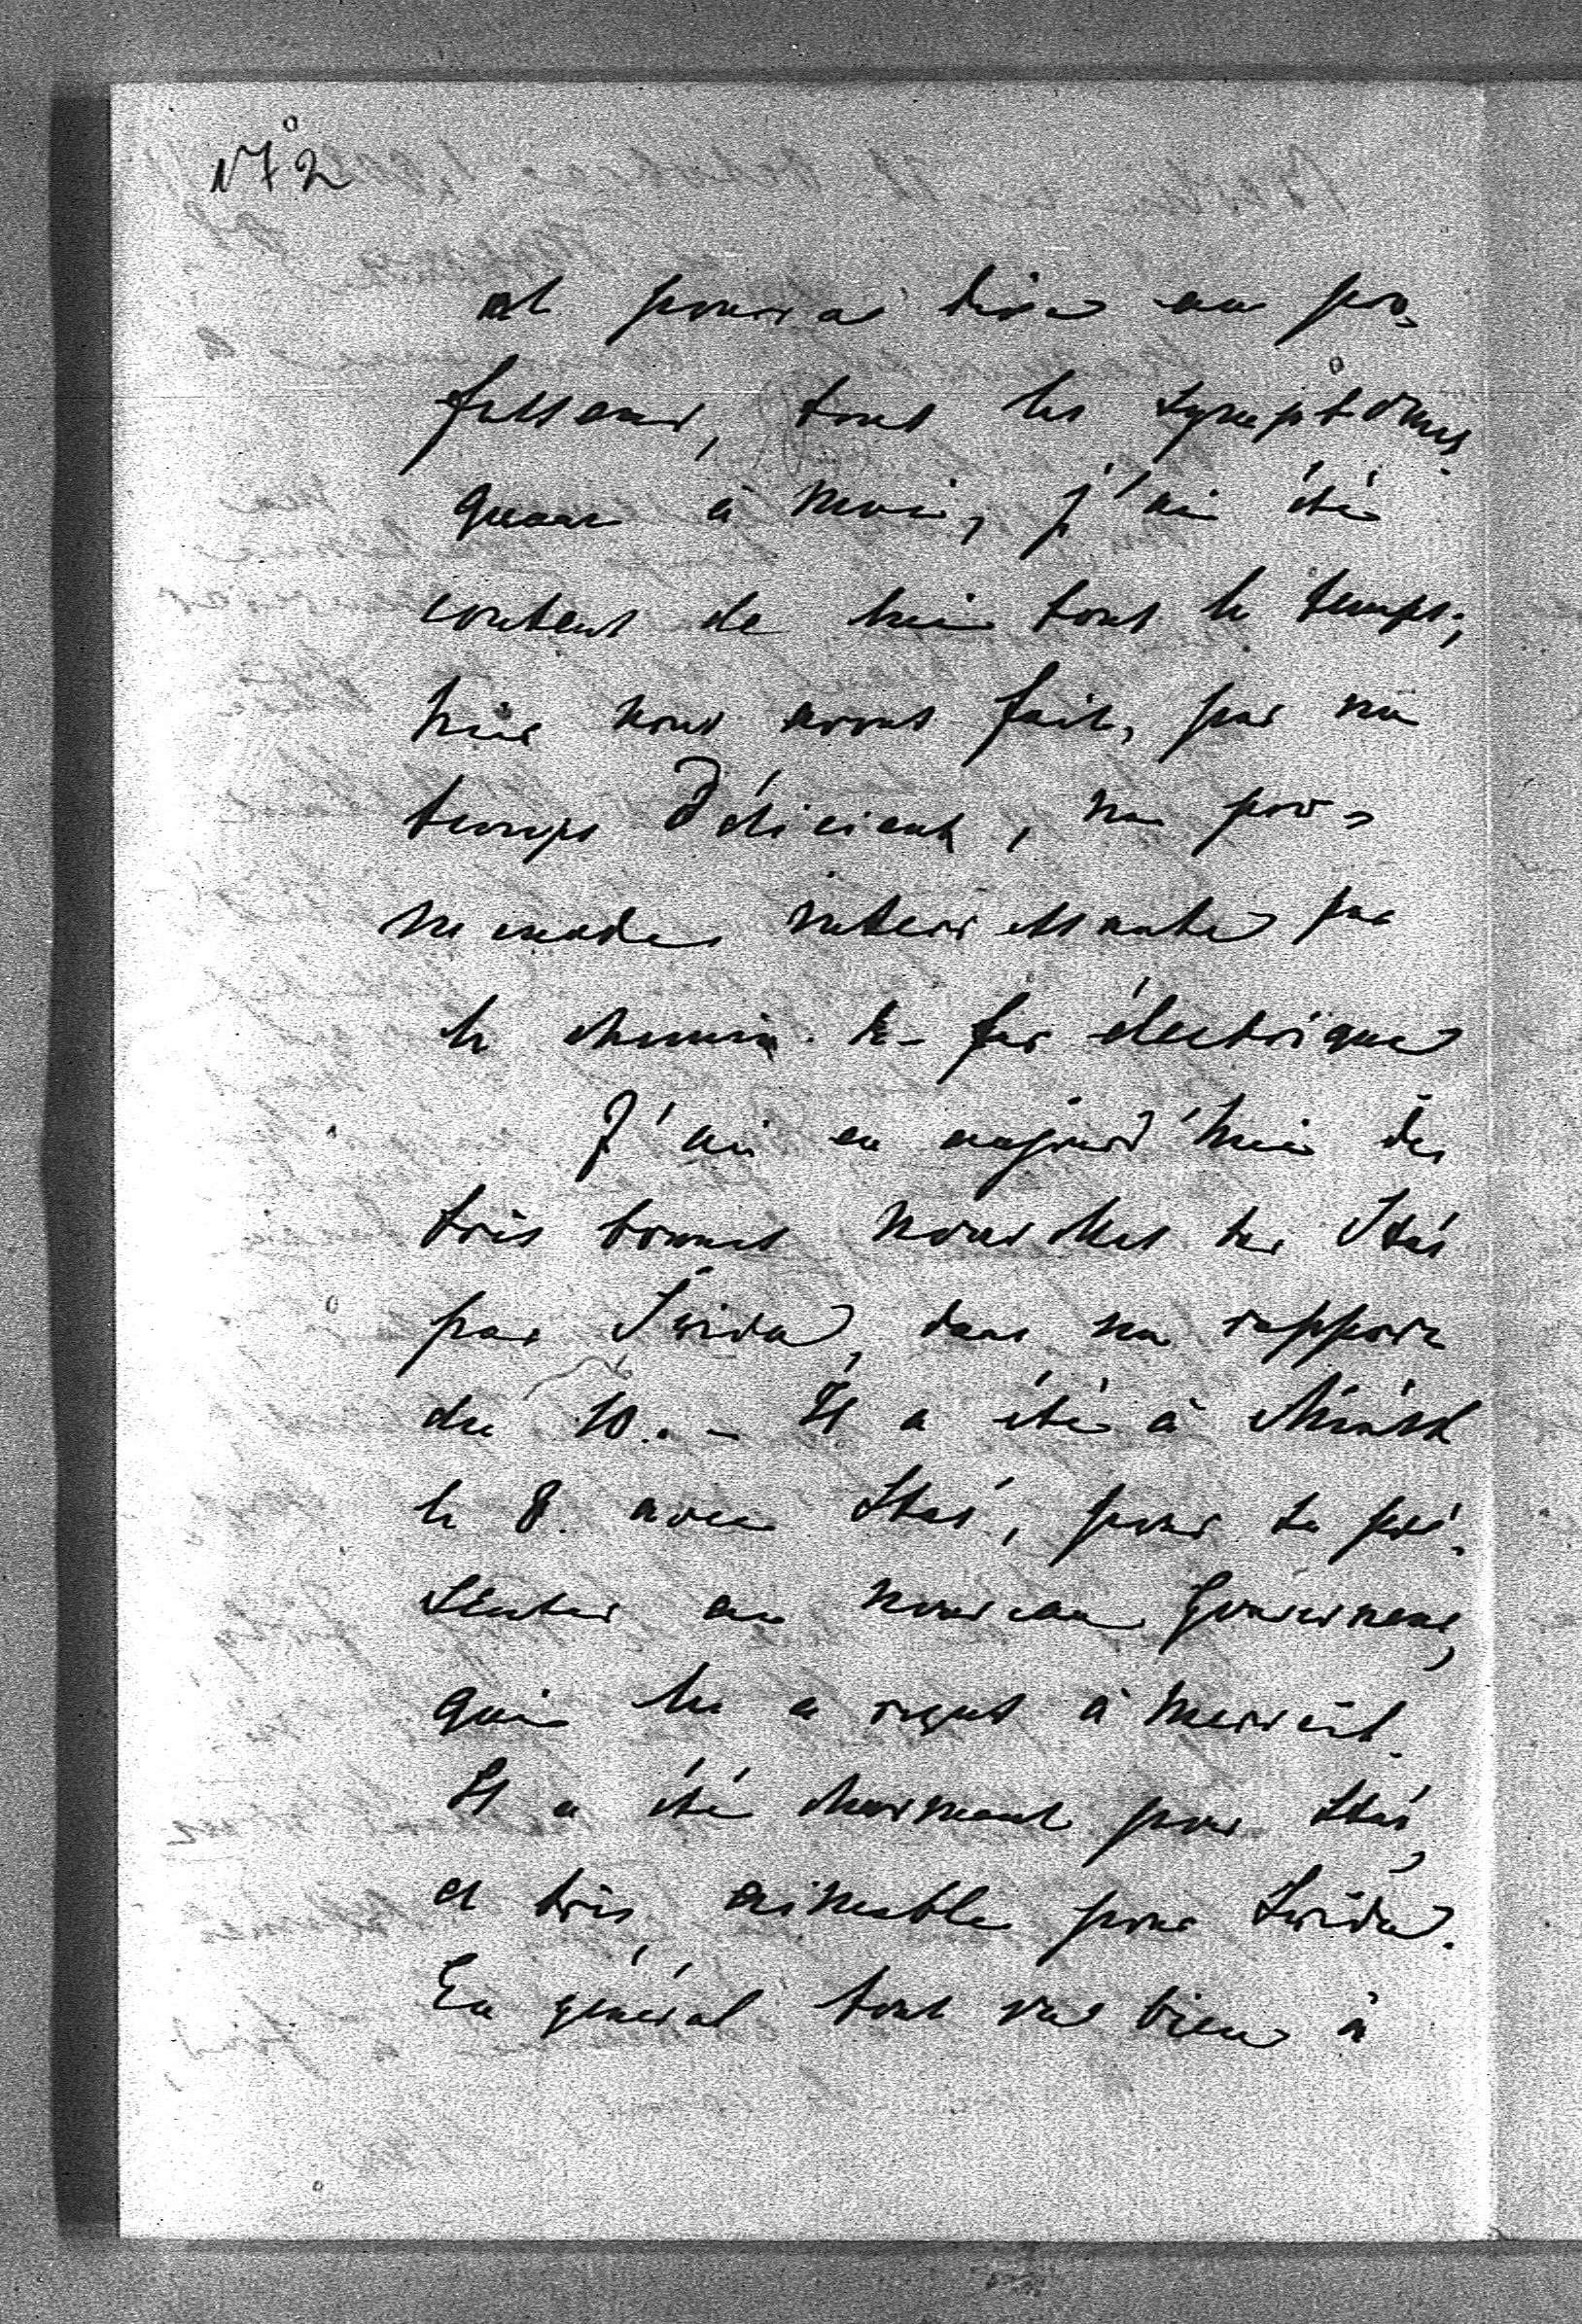 No 2
et pourrai dire au pro=
fesseur, tous les symptômes.
quant à moi, j'ai été
content de lui tout le temps;
hier nous avons fait, par un
temps délicieux, une pro=
menade interressante par
le chemin de fer électrique
J'ai eu aujourd'hui des
très bonnes nouvelles de Staś
par Swida, dans un rapport
du 10. – Il a été à Minsk
le 8. avec Staś, pour se pré-
senter au nouveau Gouverneur,
qui les a reçus à merveil.
Il a été charmant pour Staś,
et très aimable pour Swida.
En général tout va bien à